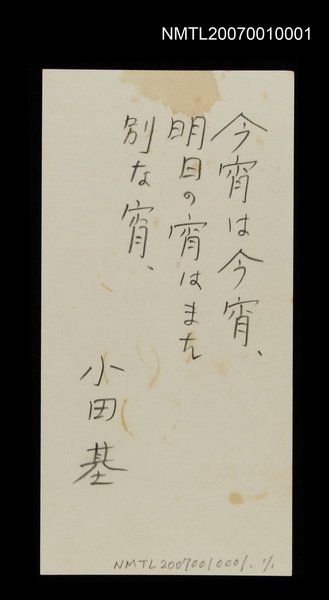 NMTL20070010001
今宵は今宵、
明日の宵はまた
別な宵、
小田基
NMTL20070010001. 1/1